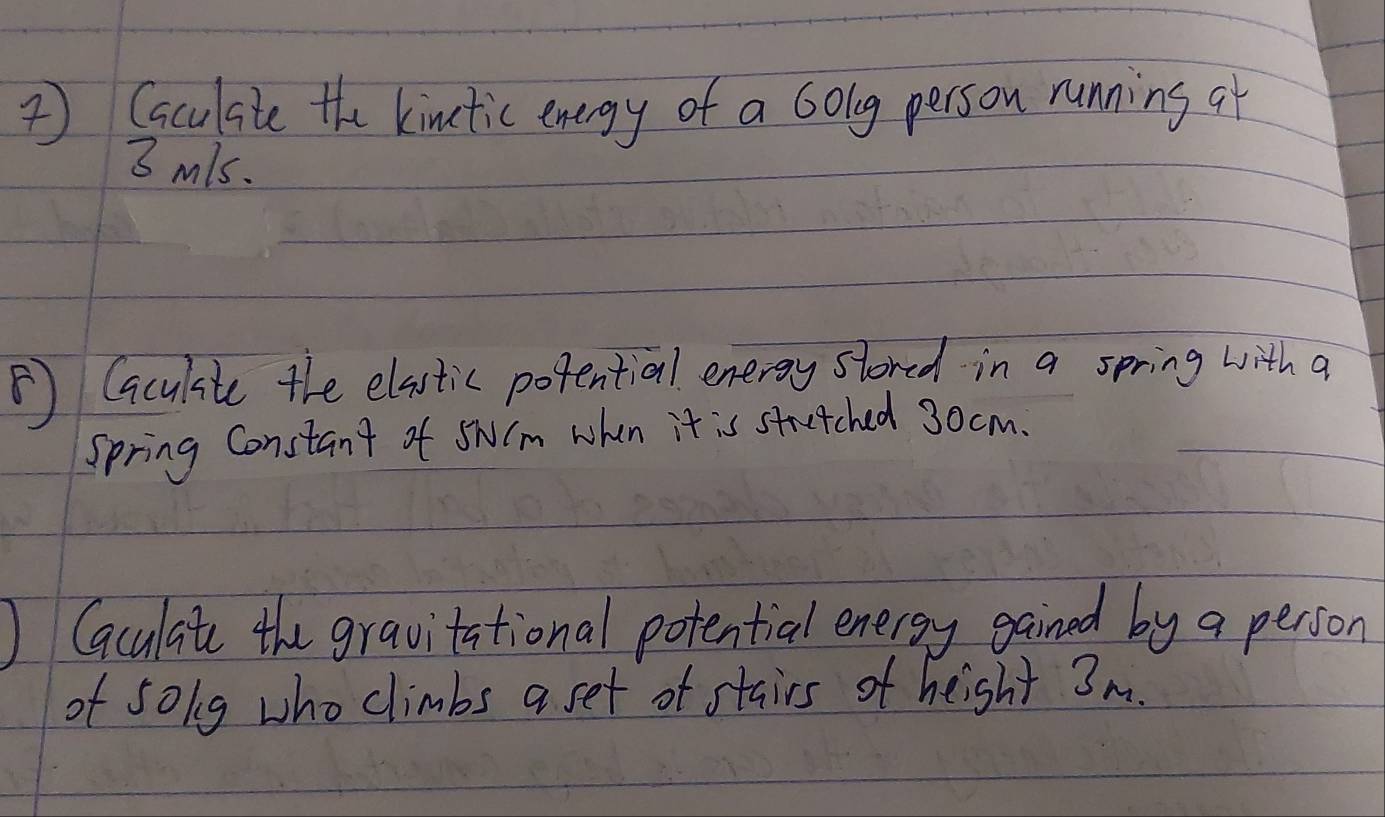 7) Caculate the kinetic energy of a 60kg person running at
3 m/s.
8) Caculate the elastic potential energy stored in a spring with a
spring constant of 5N/m when it is stretched 30cm.
) Caculate the gravitational potential energy gained by a person
of 50kg who climbs a set of stairs of height 3m.